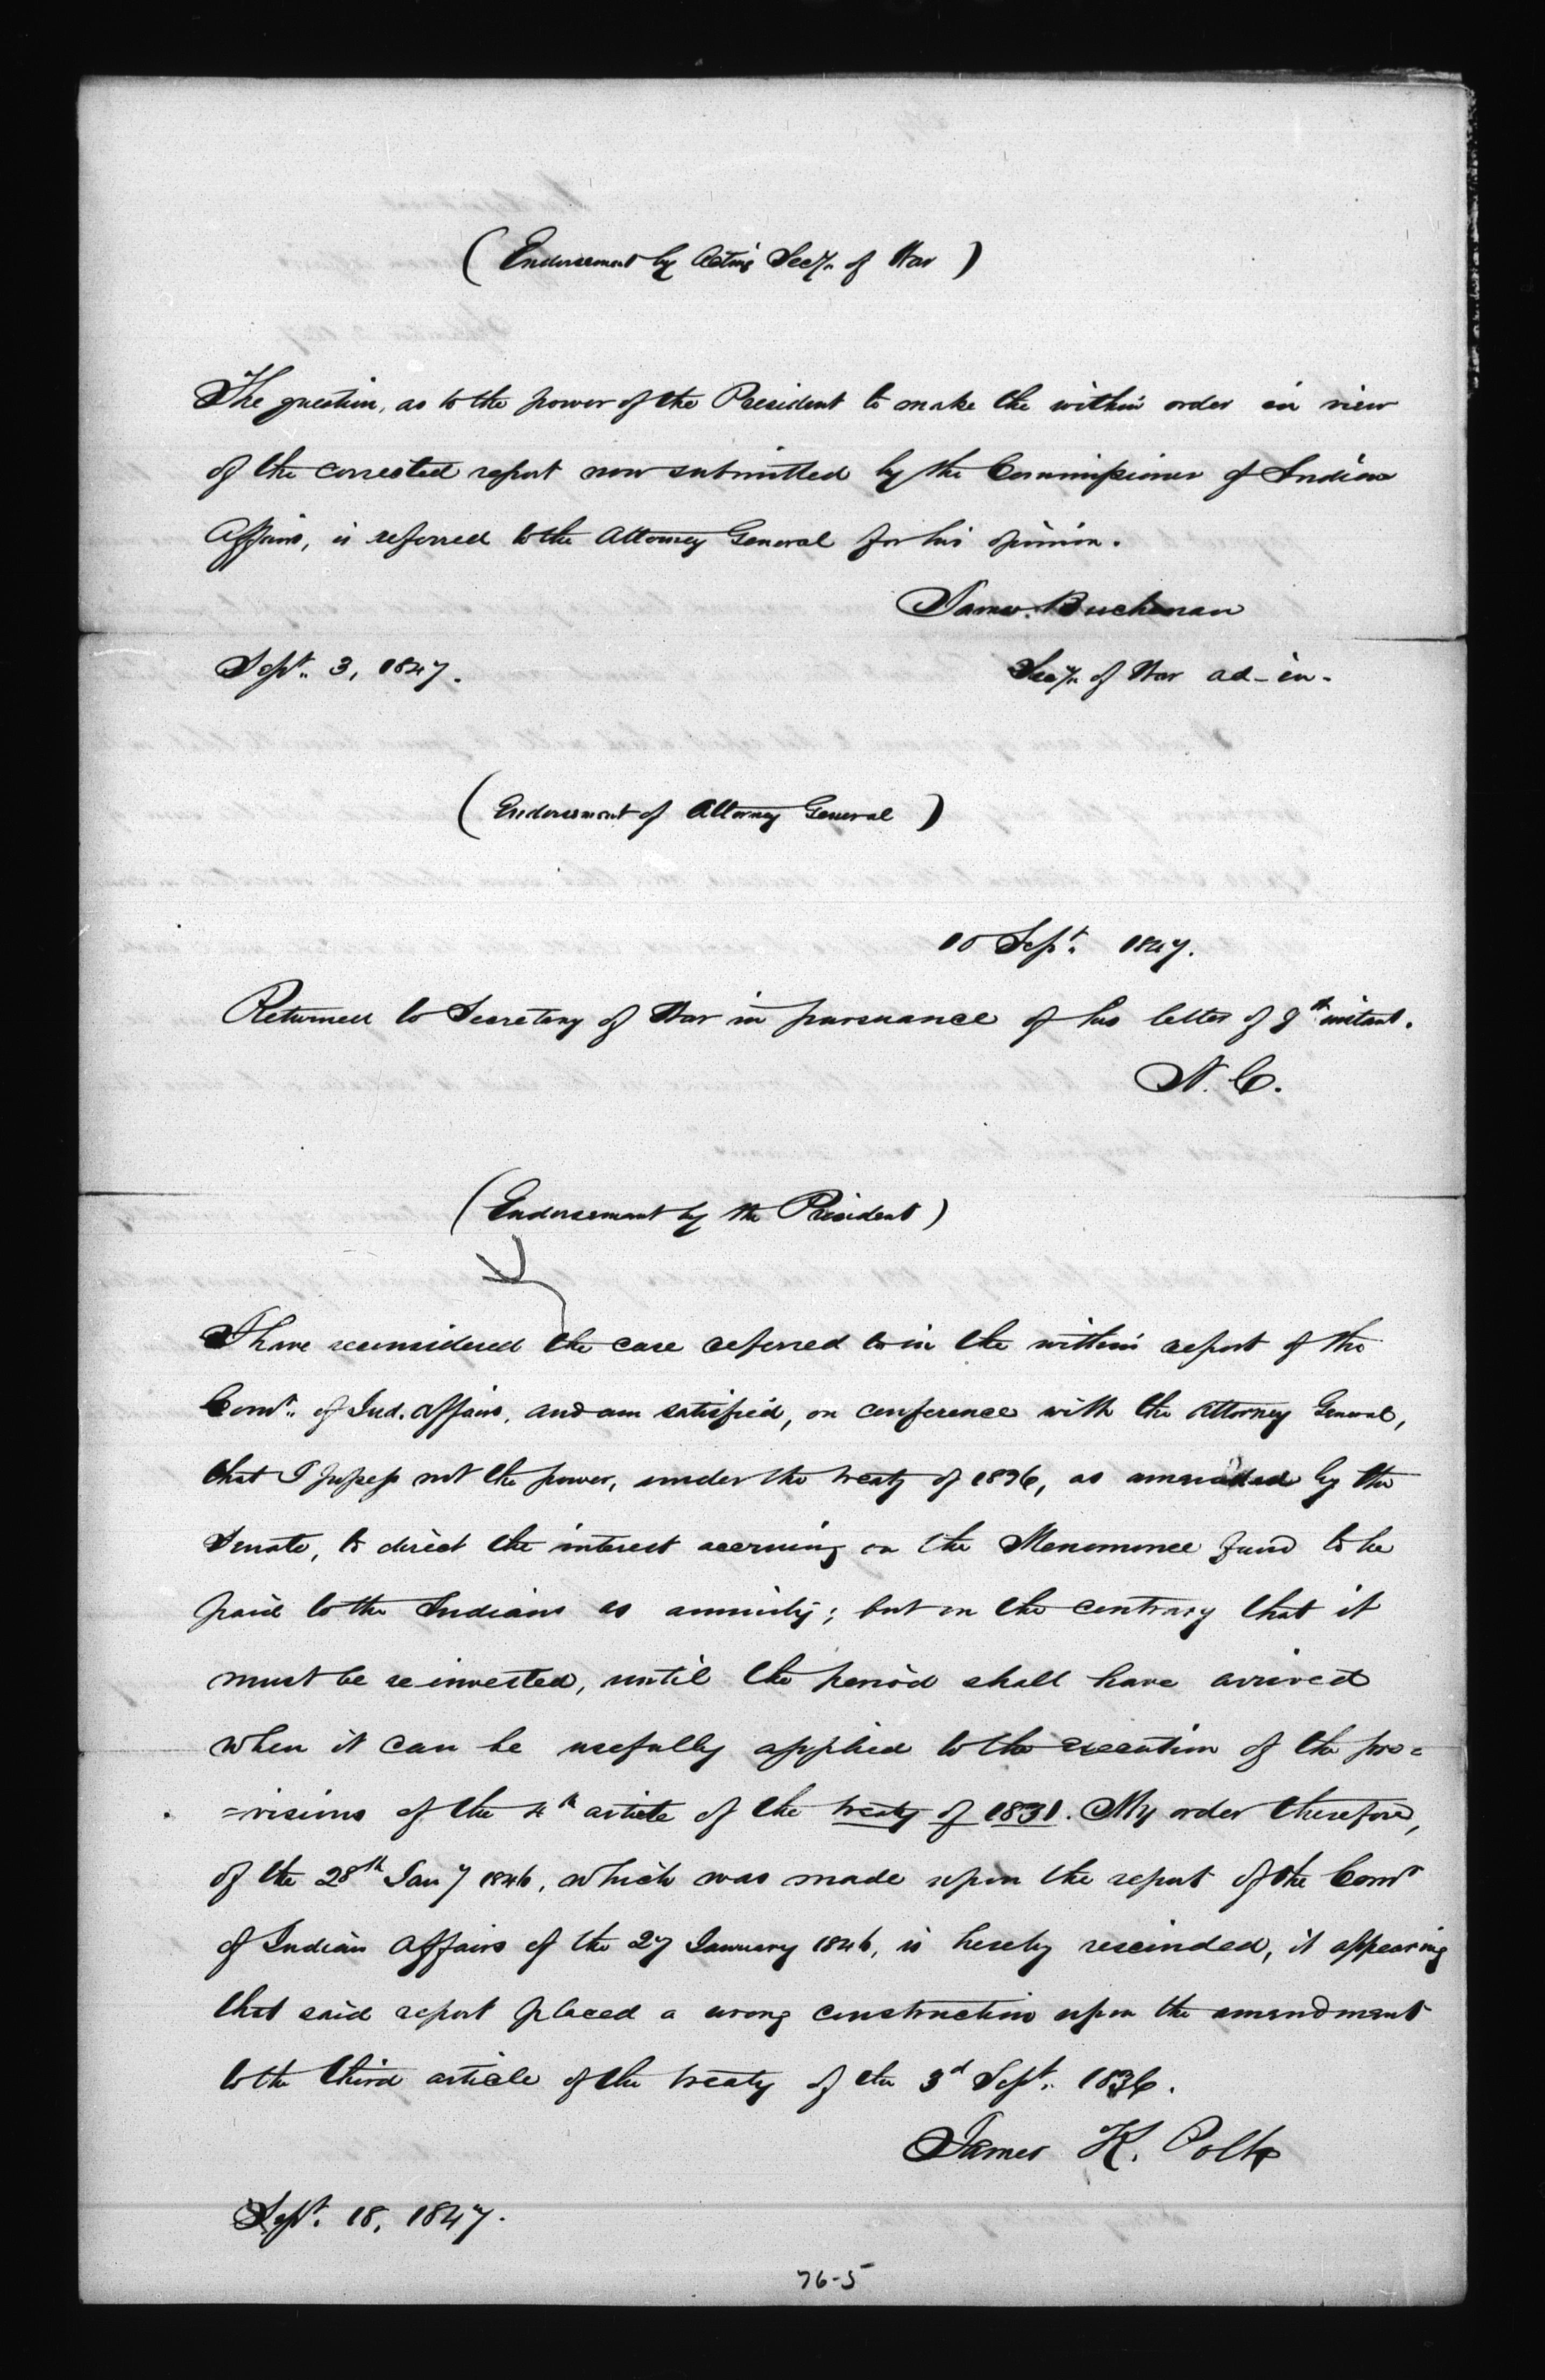 (Endorsement by Acting Sec'y. of War)
The question, as to the power of the President to make the within order in view
of the corrected report now submitted by the Commissioner of Indian
Affairs, is referred to the Attorney General for his opinion.
James Buchanan
Sept. 3, 1847.
Sec'y. of War ad-in.
(Endorsement of Attorney General)
10 Sept. 1847.
Returned to Secretary of War in pursuance of his letter of 9th instant.
N. C.
(Endorsement by the President)
I have reconsidered the case referred to in the within report of the
Comr. of Ind. Affairs, and am satisfied, on conference with the Attorney General,
that I possess not the power, under the treaty of 1836, as amended by the
Senate, to direct the interest accruing on the Menomonee fund to be
paid to the Indians as annuity; but on the contrary that it
must be re-invested, until the period shall have arrived
when it can be usefully applied to the execution of the pro=
=visions of the 4th article of the treaty of 1831. My order therefore,
of the 28th Jany 1846, which was made upon the report of the Comr
of Indian Affairs of the 27 January 1846, is hereby rescinded, it appearing
that said report placed a wrong construction upon the amendment
to the third article of the treaty of the 3d Sept. 1836.
James K. Polk
Sept. 18, 1847.
76-5